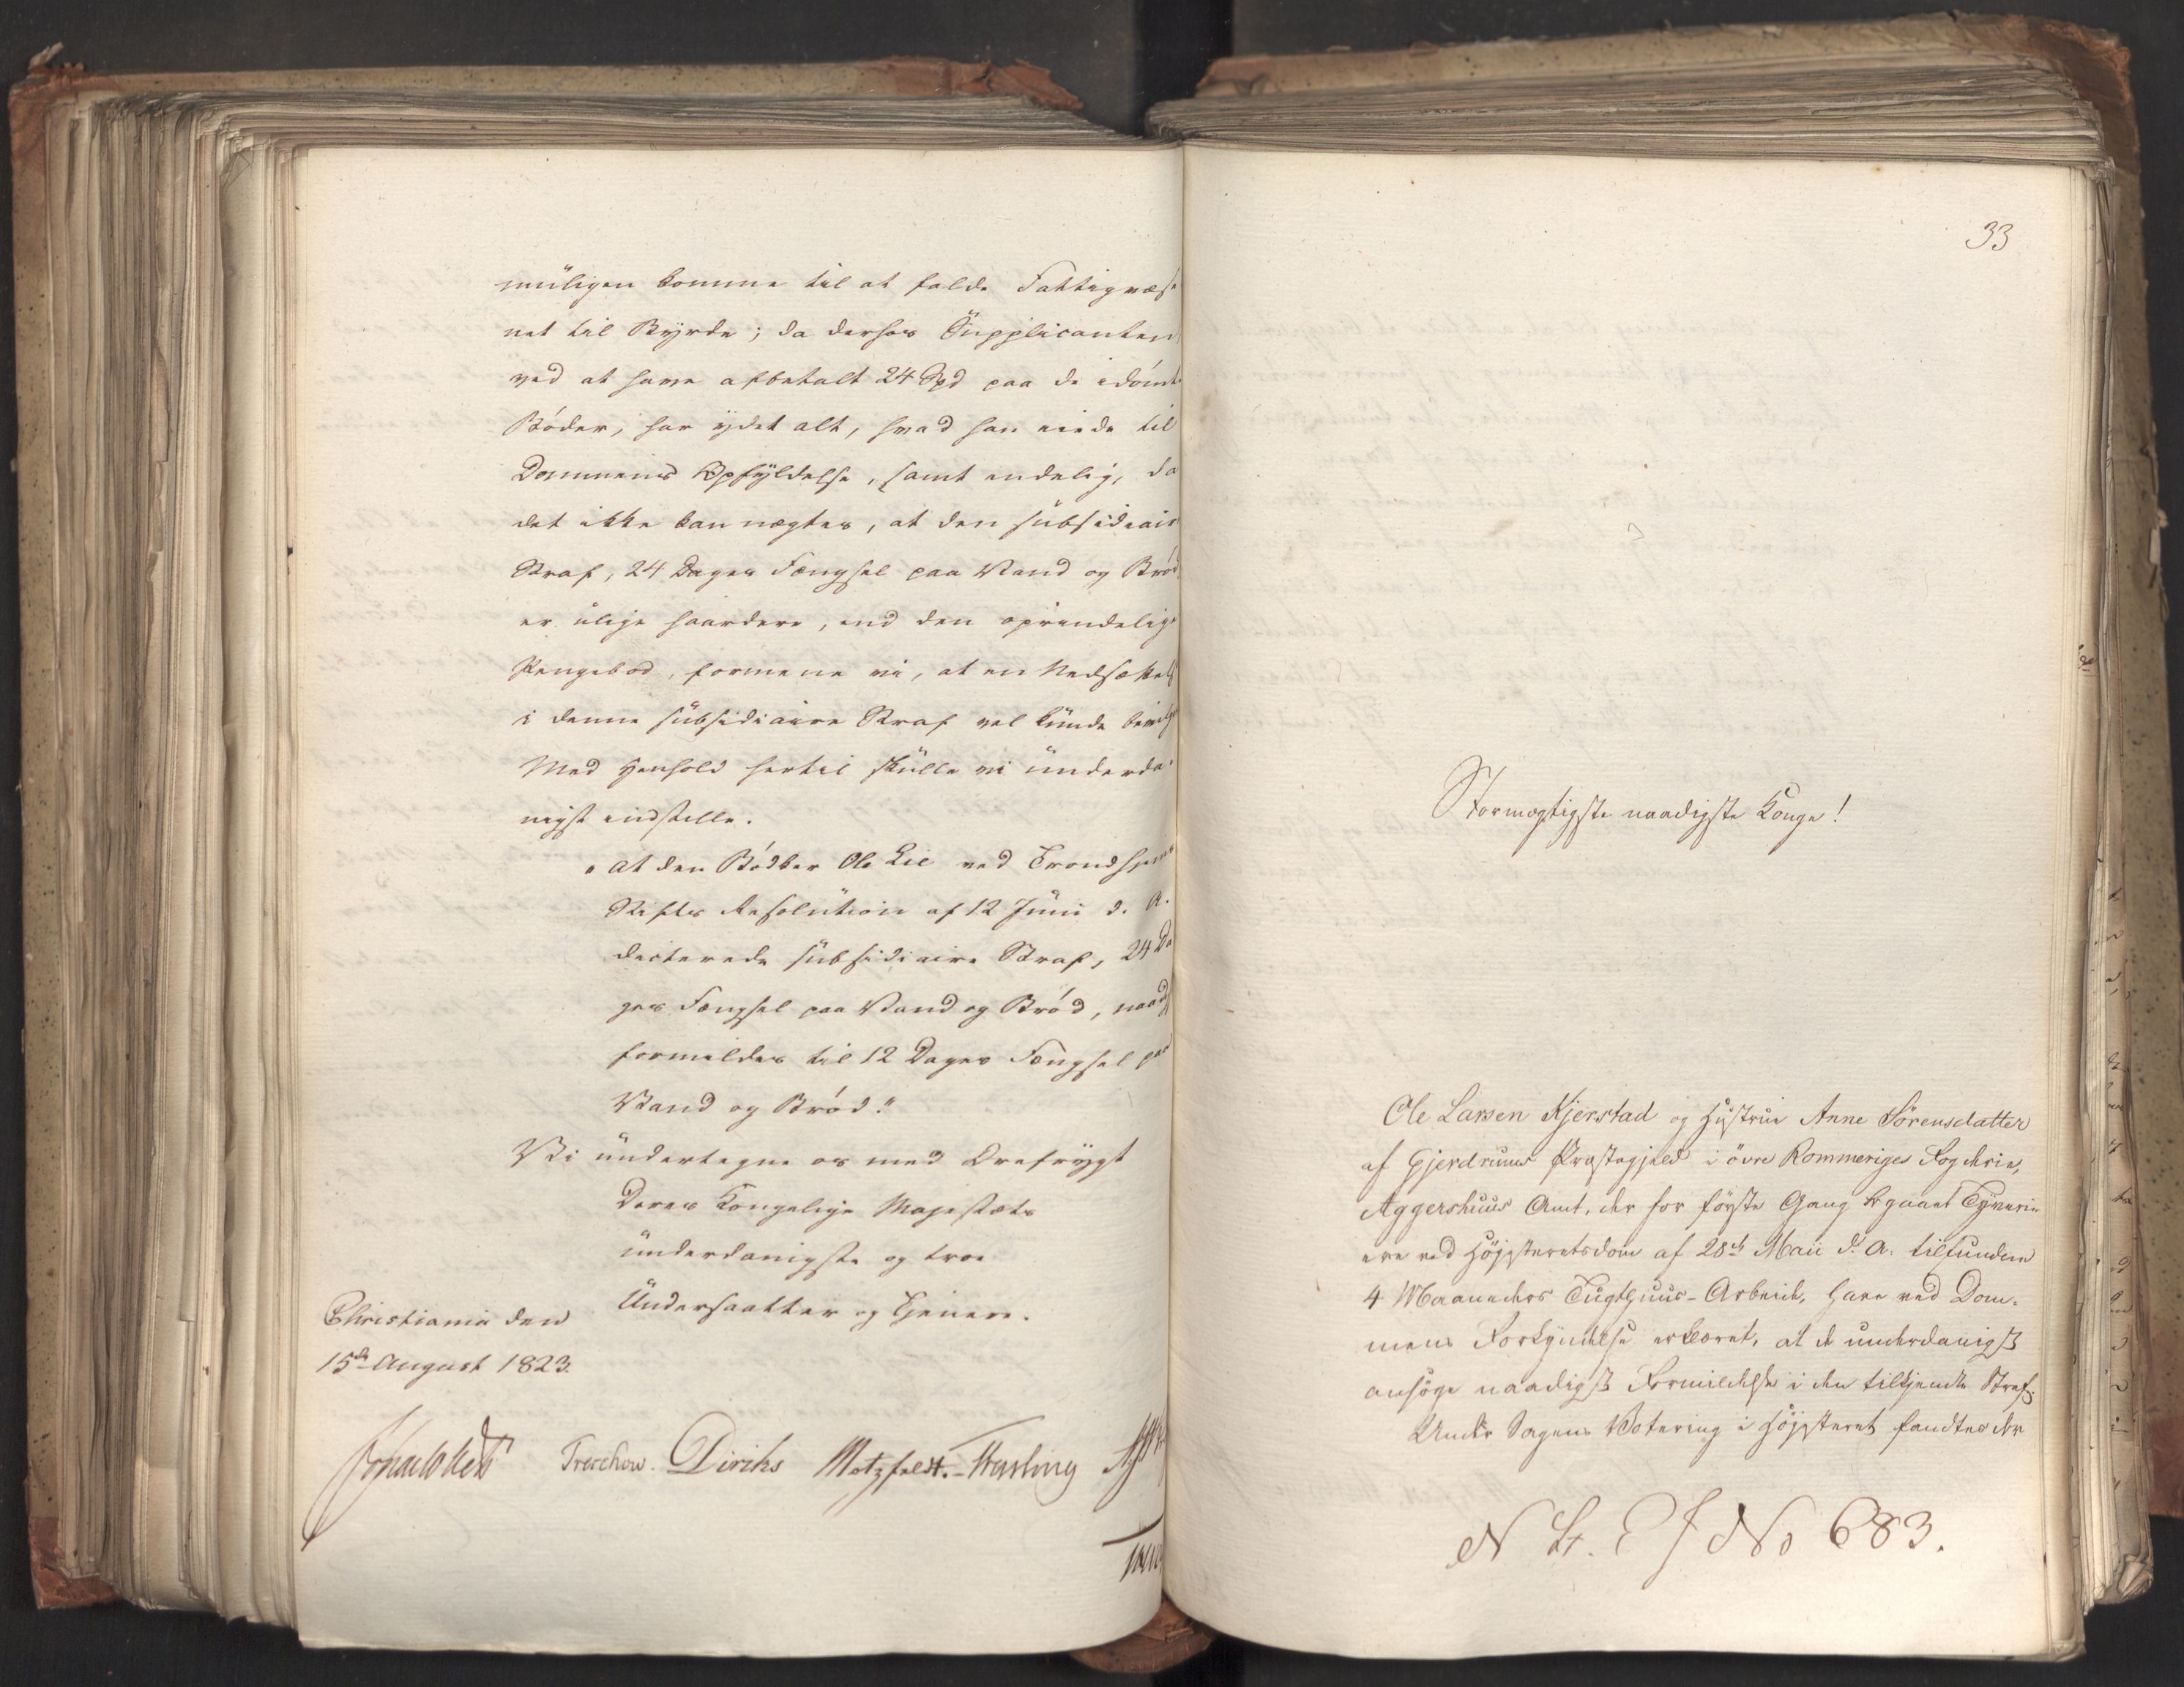 müligen komme til at falde Fattigvæse
net til Byrde; da derhos Süpplicanten
ved at have afbetalt 24 Spd paa de idömte
Böder, har ydet alt, hvad han eiede til
Dommens Opfyldelse, samt endelig, da
det ikke kan nægtes, at den sübsidiair
Straf, 24 Dages Fængsel paa Vand og Bröd
er ulige haardere, end den oprindelige
Pengebod, formene vi, at en Nedsættels
i denne sübsidiaire Straf vel kunde bevilges
Med Henhold hertil skülle vi ünderda-
nigst indstille.
"at den Bödker Ole Lie ved Trondhjems
Stifts Resolution af 12 Juni d. A.
dicterede sübsidiaire Straf, 24 Da
ges Fængsel paa Vand og Bröd, naad
formildes til 12 Dages Fængsel paa
Vand og Bröd."
Vi ündertegne os med Ærefrygt
Deres Kongelige Majestæts
ünderdanigste og troe
Ündersaatter og Tjenere.
Christiania den
15de August 1823.
Treschow. Diriks Motzfeldt.
33
Stormægtigste naadigste Konge!
Ole Larsen Kjerstad og Hustrue Anne Sörensdatter
af Gjerdrums Præstegjeld i övre Rommeriges Fogderie,
Aggershuus Amt, der for förste Gang begaaet Tyverie
ere ved Höjesteretsdom af 28de Maii d. A. tilfundne
4 Maaneders Tugthuus-Arbeide, have ved Dom-
mens Forkyndelse erklæret, at de underdanigst
ansöge naadigst Formildelse i den tilkjendte Straf.
Under Sagens Votering i Höjesteret fandtes der
No 683.